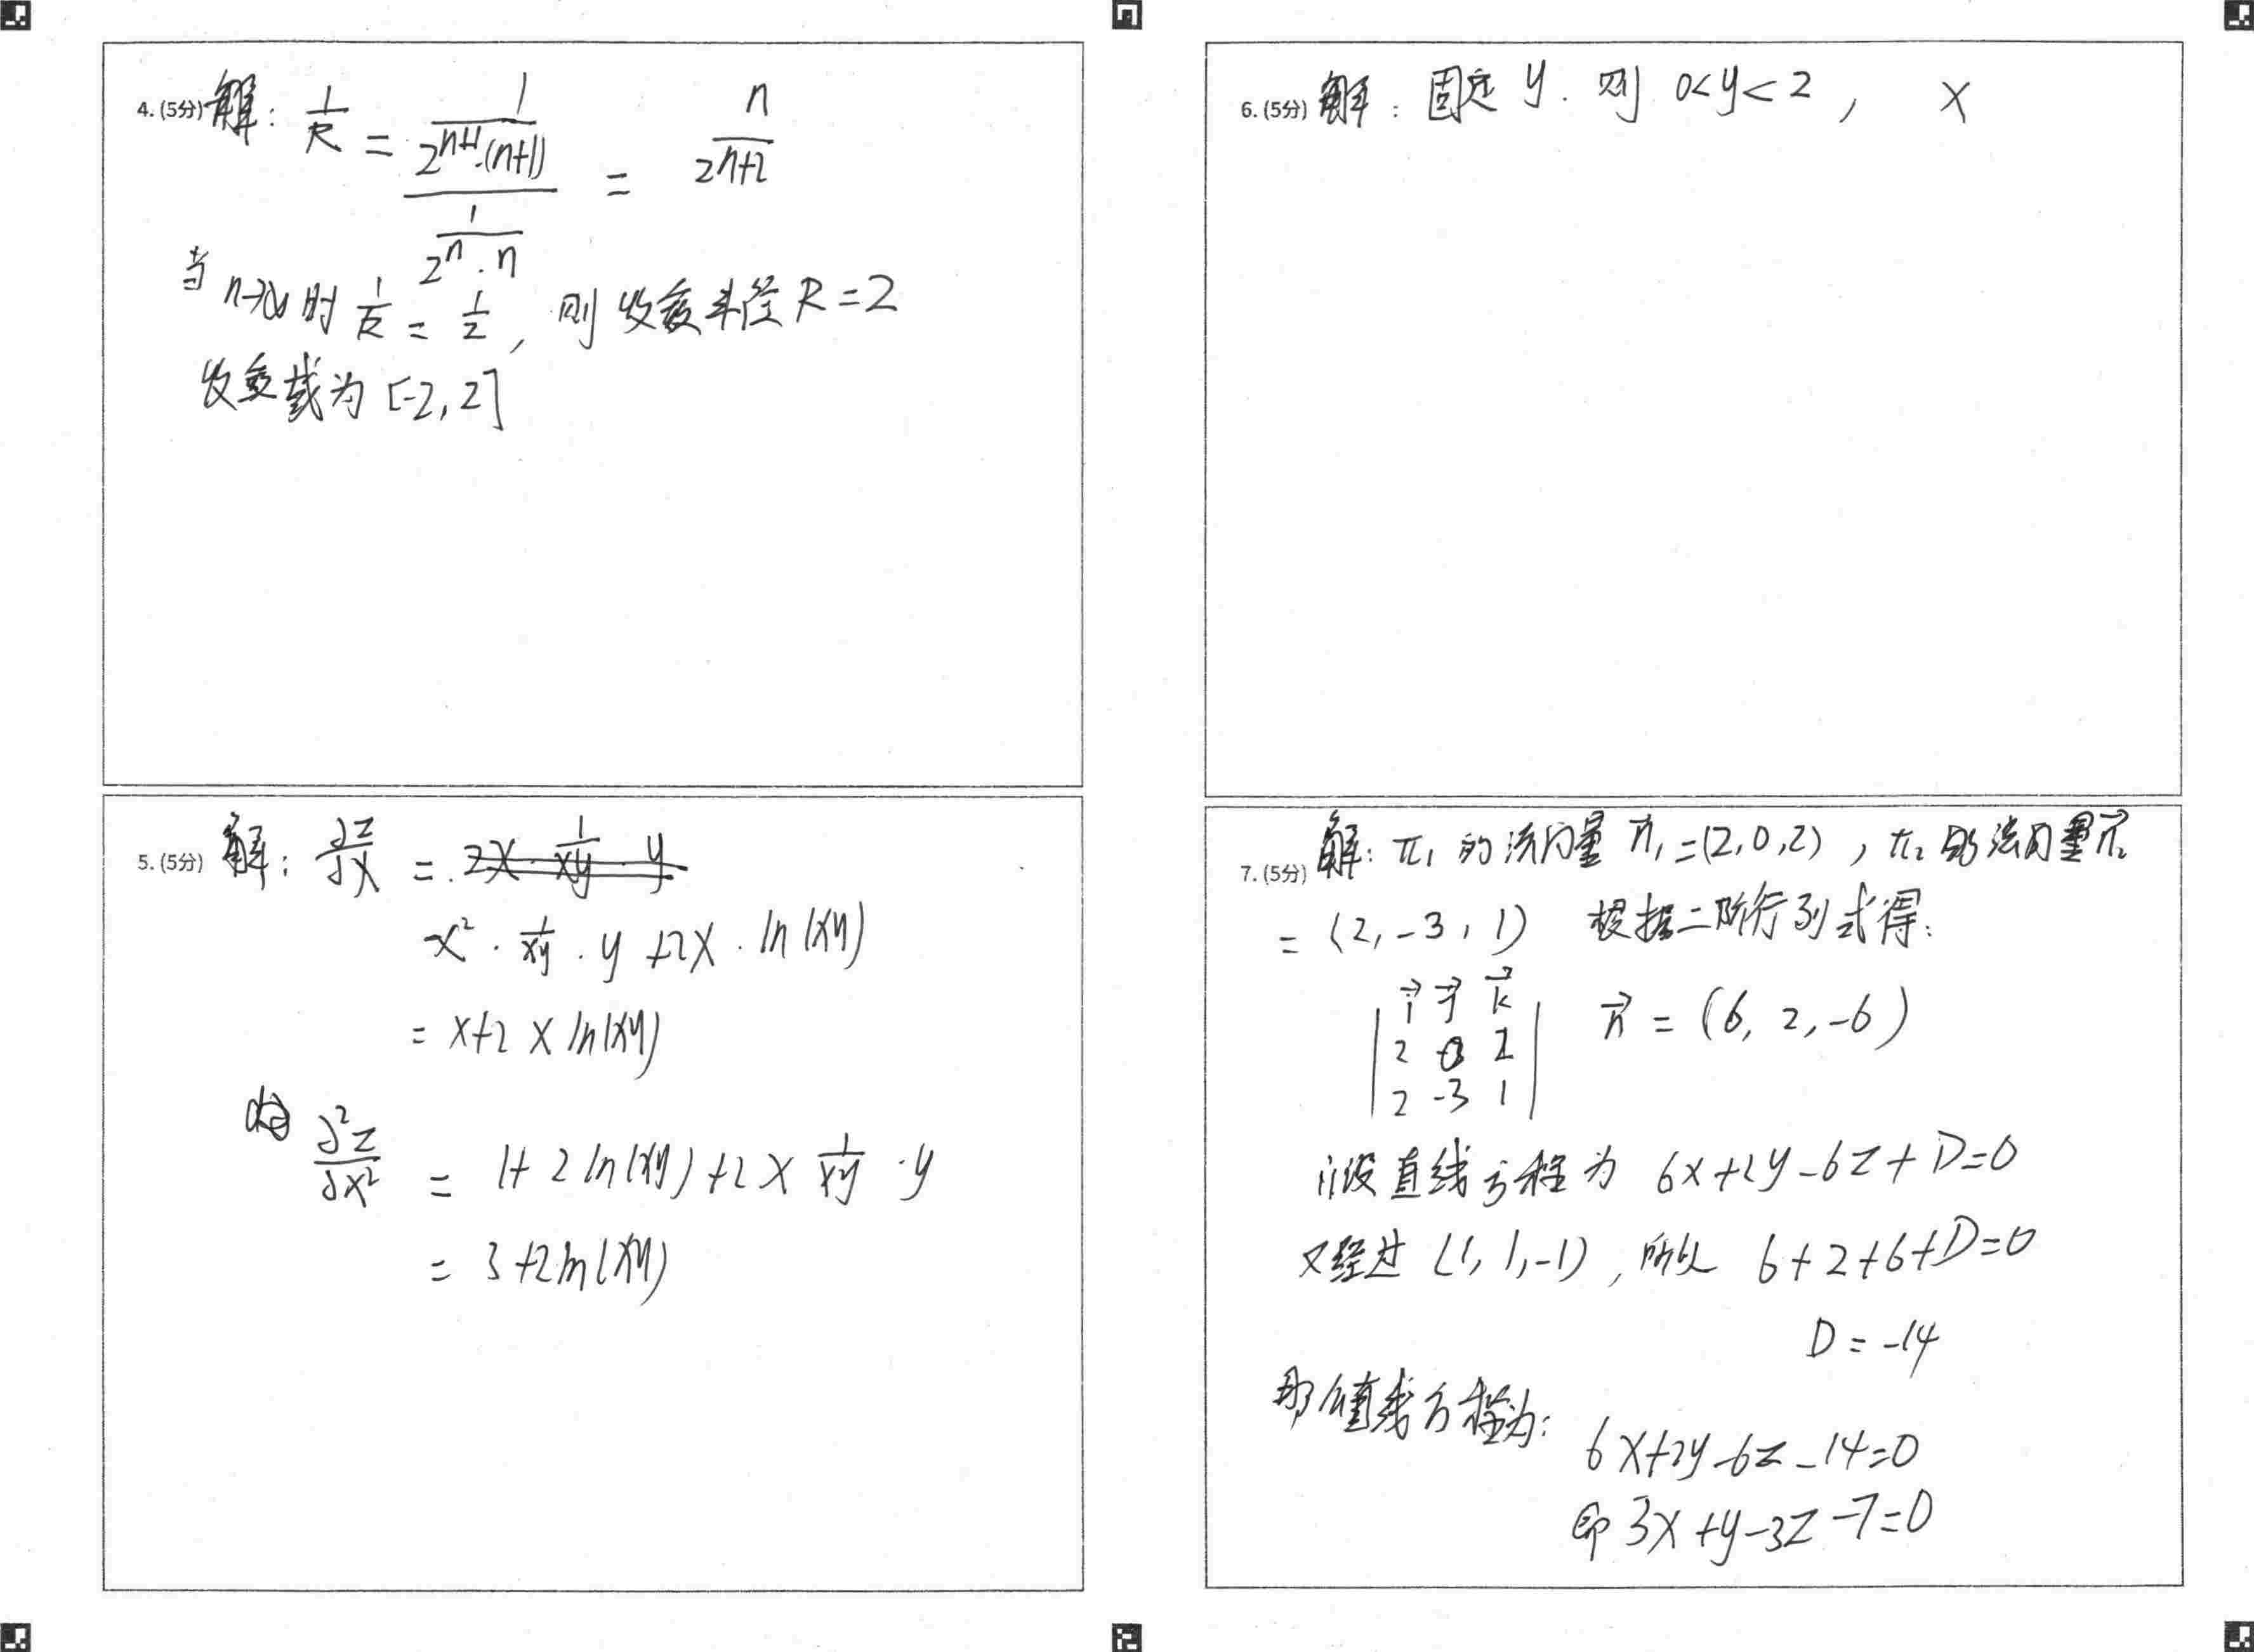 4. (5分) 解: 1/R = (1/(2^(n+1)·(n+1)))/(1/(2^n·n)) = n/(2n+2)
当 n→∞ 时 1/R = 1/2, 则 收敛半径 R=2
收敛域为 [-2, 2]
5. (5分) 解: ∂z/∂x = 2x · 1/xy · y
x² · 1/xy · y + 2x · ln(xy)
= x+2 x ln(xy)
∂²z/∂x² = 1+ 2 ln(xy) + 2x 1/xy · y
= 3+2ln(xy)
6. (5分) 解: 固定 y. 则 0<y<2, x
7. (5分) 解: π₁ 的法向量 n⃗₁=(2,0,2), π₂ 的法向量n⃗₂
= (2, -3, 1) 根据二阶行列式得:
| i⃗ j⃗ k⃗ |
| 2 0 2 | n⃗ = (6, 2, -6)
| 2 -3 1 |
设直线方程为 6x+2y-6z+D=0
又经过 (1, 1,-1), 所以 6+2+6+D=0
D=-14
即直线方程为:
6x+2y-6z-14=0
即 3x+y-3z-7=0